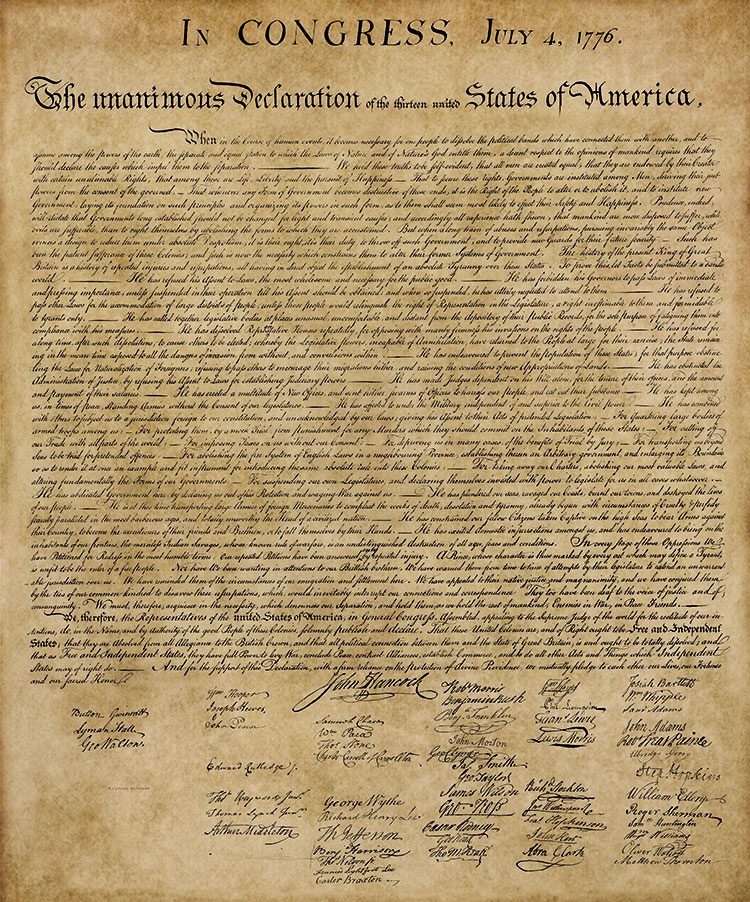 In CONGRESS, July 4, 1776.
The unanimous Declaration of the thirteen united States of America,
When in the Course of human events, it becomes necessary for one people to dissolve the political bands which have connected them with another, and to
assume among the powers of the earth, the separate and equal station to which the Laws of Nature and of Nature's God entitle them, a decent respect to the opinions of mankind requires that they
should declare the causes which impel them to the separation. — We hold these truths to be self-evident, that all men are created equal, that they are endowed by their Creator
with certain unalienable Rights, that among these are Life, Liberty and the pursuit of Happiness. — That to secure these rights, Governments are instituted among Men, deriving their just
powers from the consent of the governed, — That whenever any Form of Government becomes destructive of these ends, it is the Right of the People to alter or to abolish it, and to institute new
Government, laying its foundation on such principles and organizing its powers in such form, as to them shall seem most likely to effect their Safety and Happiness. Prudence, indeed,
will dictate that Governments long established should not be changed for light and transient causes; and accordingly all experience hath shewn, that mankind are more disposed to suffer, while
evils are sufferable, than to right themselves by abolishing the forms to which they are accustomed. But when a long train of abuses and usurpations, pursuing invariably the same Object
evinces a design to reduce them under absolute Despotism, it is their right, it is their duty, to throw off such Government, and to provide new Guards for their future security. — Such has
been the patient sufferance of these Colonies; and such is now the necessity which constrains them to alter their former Systems of Government. The history of the present King of Great
Britain is a history of repeated injuries and usurpations, all having in direct object the establishment of an absolute Tyranny over these States. To prove this, let Facts be submitted to a candid
world. — He has refused his Assent to Laws, the most wholesome and necessary for the public good. — He has forbidden his Governors to pass Laws of immediate
and pressing importance, unless suspended in their operation till his Assent should be obtained; and when so suspended, he has utterly neglected to attend to them. — He has refused to
pass other Laws for the accommodation of large districts of people, unless those people would relinquish the right of Representation in the Legislature, a right inestimable to them and formidable
to tyrants only. — He has called together legislative bodies at places unusual, uncomfortable, and distant from the depository of their public Records, for the sole purpose of fatiguing them into
compliance with his measures. — He has dissolved Representative Houses repeatedly, for opposing with manly firmness his invasions on the rights of the people. — He has refused for
a long time, after such dissolutions, to cause others to be elected; whereby the Legislative powers, incapable of Annihilation, have returned to the People at large for their exercise; the State remain-
ing in the mean time exposed to all the dangers of invasion from without, and convulsions within. — He has endeavoured to prevent the population of these States; for that purpose obstruc-
ting the Laws for Naturalization of Foreigners; refusing to pass others to encourage their migrations hither, and raising the conditions of new Appropriations of Lands. — He has obstructed the
Administration of Justice, by refusing his Assent to Laws for establishing Judiciary powers. — He has made Judges dependent on his Will alone, for the tenure of their offices, and the amount
and payment of their salaries. — He has erected a multitude of New Offices, and sent hither swarms of Officers to harrass our people, and eat out their substance. — He has kept among
us, in times of peace, Standing Armies without the Consent of our legislatures. — He has affected to render the Military independent of and superior to the Civil power. — He has combined
with others to subject us to a jurisdiction foreign to our constitution, and unacknowledged by our laws; giving his Assent to their Acts of pretended Legislation: — For Quartering large bodies of
armed troops among us: — For protecting them, by a mock Trial, from punishment for any Murders which they should commit on the Inhabitants of these States: — For cutting off
our Trade with all parts of the world: — For imposing Taxes on us without our Consent: — For depriving us in many cases, of the benefits of Trial by Jury: — For transporting us beyond
Seas to be tried for pretended offences — For abolishing the free System of English Laws in a neighbouring Province, establishing therein an Arbitrary government, and enlarging its Boundaries
so as to render it at once an example and fit instrument for introducing the same absolute rule into these Colonies: — For taking away our Charters, abolishing our most valuable Laws, and
altering fundamentally the Forms of our Governments: — For suspending our own Legislatures, and declaring themselves invested with power to legislate for us in all cases whatsoever. —
He has abdicated Government here, by declaring us out of his Protection and waging War against us. — He has plundered our seas, ravaged our Coasts, burnt our towns, and destroyed the lives
of our people. — He is at this time transporting large Armies of foreign Mercenaries to compleat the works of death, desolation and tyranny, already begun with circumstances of Cruelty & perfidy
scarcely paralleled in the most barbarous ages, and totally unworthy the Head of a civilized nation. — He has constrained our fellow Citizens taken Captive on the high Seas to bear Arms against
their Country, to become the executioners of their friends and Brethren, or to fall themselves by their Hands. — He has excited domestic insurrections amongst us, and has endeavoured to bring on the
inhabitants of our frontiers, the merciless Indian Savages, whose known rule of warfare, is an undistinguished destruction of all ages, sexes and conditions. In every stage of these Oppressions We
have Petitioned for Redress in the most humble terms: Our repeated Petitions have been answered only by repeated injury. A Prince, whose character is thus marked by every act which may define a Tyrant,
is unfit to be the ruler of a free people. Nor have We been wanting in attentions to our Brittish brethren. We have warned them from time to time of attempts by their legislature to extend an unwarrant-
able jurisdiction over us. We have reminded them of the circumstances of our emigration and settlement here. We have appealed to their native justice and magnanimity, and we have conjured them
by the ties of our common kindred to disavow these usurpations, which, would inevitably interrupt our connections and correspondence. They too have been deaf to the voice of justice and of
consanguinity. We must, therefore, acquiesce in the necessity, which denounces our Separation, and hold them, as we hold the rest of mankind, Enemies in War, in Peace Friends. —
We, therefore, the Representatives of the united States of America, in General Congress, Assembled, appealing to the Supreme Judge of the world for the rectitude of our in-
tentions, do, in the Name, and by Authority of the good People of these Colonies, solemnly publish and declare, That these United Colonies are, and of Right ought to be Free and Independent
States; that they are Absolved from all Allegiance to the British Crown, and that all political connection between them and the State of Great Britain, is and ought to be totally dissolved; and
that as Free and Independent States, they have full Power to levy War, conclude Peace, contract Alliances, establish Commerce, and to do all other Acts and Things which Independent
States may of right do. — And for the support of this Declaration, with a firm reliance on the protection of divine Providence, we mutually pledge to each other our Lives, our Fortunes
and our sacred Honor.
Button Gwinnett
Lyman Hall
Geo Walton.
Wm Hooper
Joseph Hewes,
John Penn
Edward Rutledge /.
Thos Heyward Junr.
Thomas Lynch Junr.
Arthur Middleton
John Hancock
Samuel Chase
Wm Paca
Thos Stone
Charles Carroll of Carrollton
George Wythe
Richard Henry Lee
Th Jefferson
Benj Harrison
Thos Nelson jr.
Francis Lightfoot Lee
Carter Braxton
Robt Morris
Benjamin Rush
Benj. Franklin
John Morton
Geo Clymer
Jas. Smith
Geo. Taylor
James Wilson
Geo. Ross
Caesar Rodney
Geo Read
Tho M:Kean
Wm Floyd
Phil. Livingston
Frans. Lewis
Lewis Morris
Richd. Stockton
Jno Witherspoon
Fras. Hopkinson
John Hart
Abra Clark
Josiah Bartlett
Wm Whipple
Saml Adams
John Adams
Robt Treat Paine
Elbridge Gerry
Step. Hopkins
William Ellery
Roger Sherman
Saml Huntington
Wm Williams
Oliver Wolcott
Matthew Thornton